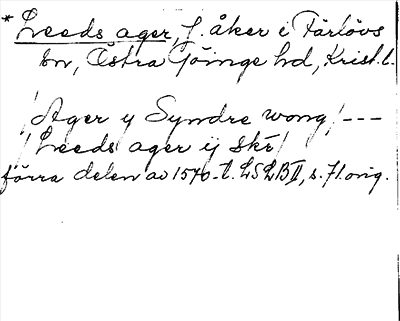 * Leeds ager, f. åker i Färlövs
sn, Östra Göinge hd, Krist. l.
/Ager y Syndre wong/ ---
/Leeds ager ij skr/
förra delen av 1540-t. LSLB II, s. 71 orig.